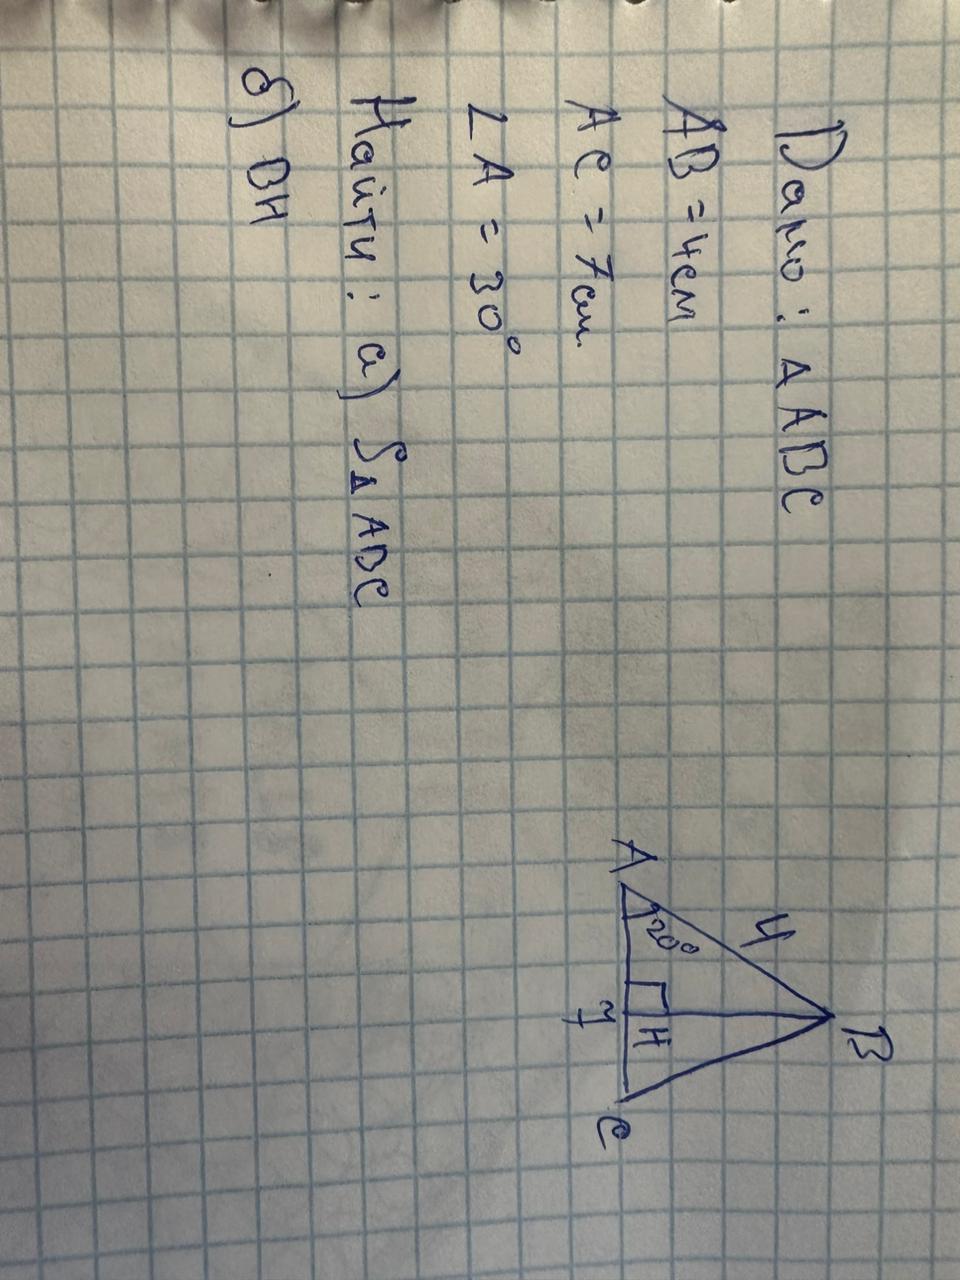 Дано: Δ ABC
AB = 4см
AC = 7см.
∠A = 30°
Найти: а) SΔ ABC
б) BH
B
4
A
30°
H
7
C